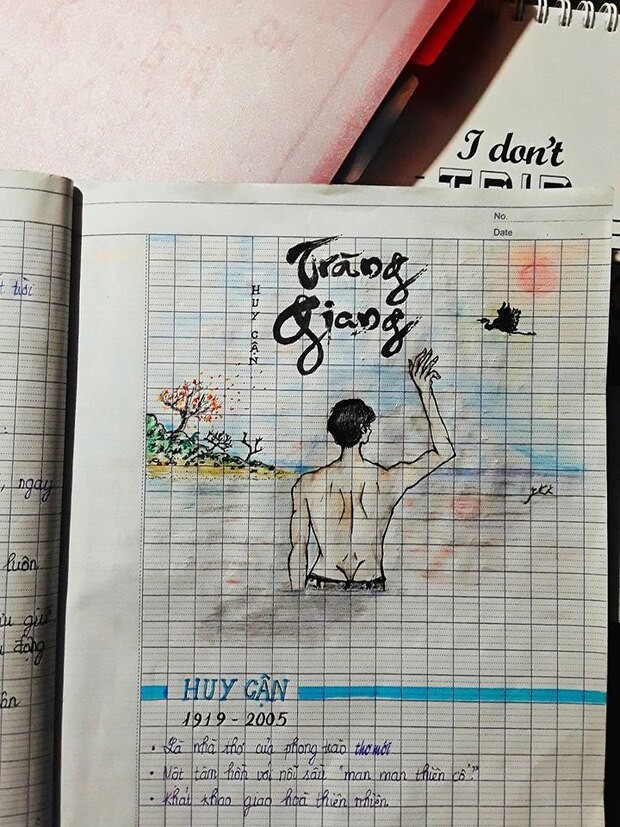 I don't
TRIP
No.
Date
Tràng
Giang
HUY CẬN
tuổi
, ngay
luôn
giữ
động
HUY CẬN
1919 - 2005
• Là nhà thơ của phong trào thơ mới
• Một tâm hồn với nỗi sầu "man man thiên cổ"
• Khát khao giao hoà thiên nhiên